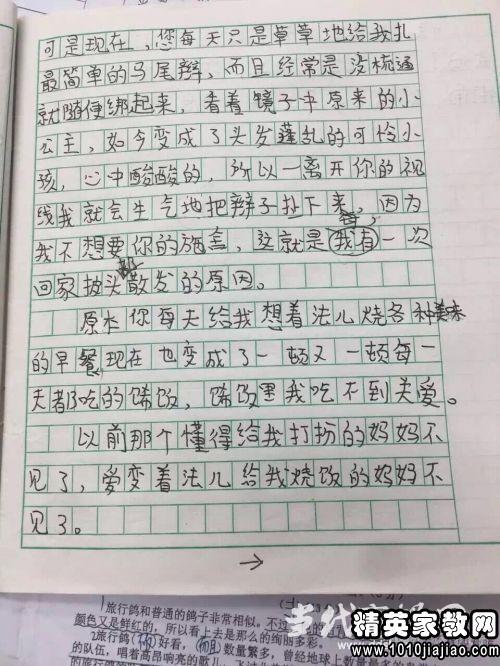 可是现在,您每天只是草草地给我扎
最简单的马尾辫,而且经常是没梳通
就随便绑起来,看着镜子中原来的小
公主,如今变成了头发蓬乱的可怜小
孩,心中酸酸的,所以一离开你的视
线我就会生气地把辫子扯下来,因为
我不想要你的施舍,这就是我有一次
回家披头散发的原因。
原本你每天给我想着法儿烧各种美味
的早餐现在也变成了一顿又一顿每一
天都吃的饭,饭里我吃不到关爱。
以前那个懂得给我打扮的妈妈不
见了,爱变着法儿给我烧饭的妈妈不
见了。
→
旅行鸽和普通的鸽子非常相似。
颜色又是鲜红的,所以看上去是那么的绚丽多彩。
2旅行鸽
好看,
数量繁多,曾经
的队伍,唱着高昂响亮的歌儿,
精英家教网
www.1010jiajiao.com